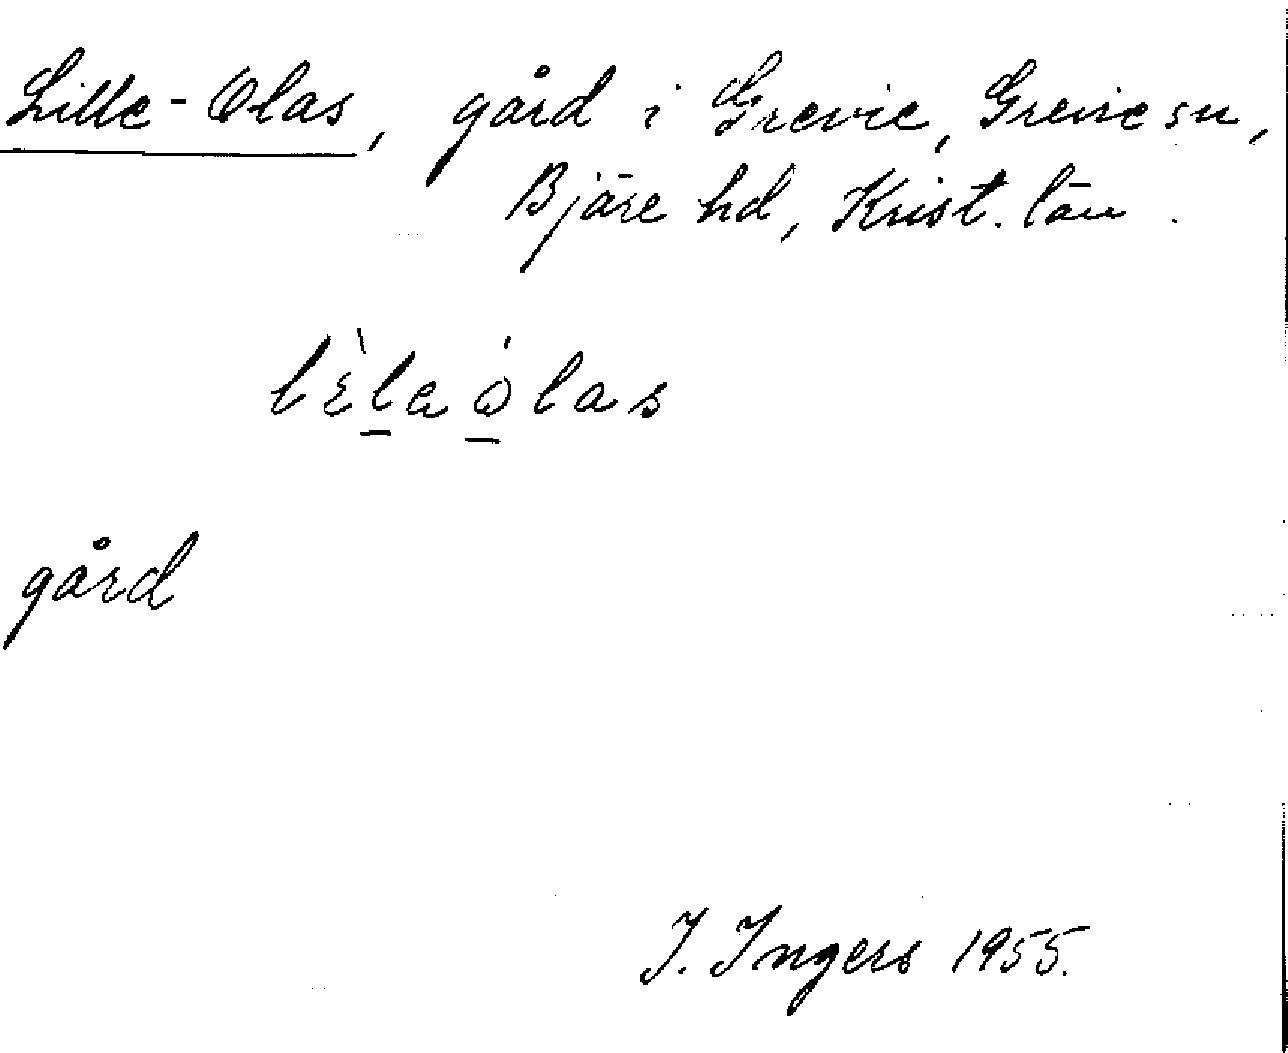 Lille-Olas, gård i Grevie, Grevie sn,
Bjäre hd, Krist. län.
lὲla ólas
gård
I. Ingers 1955.